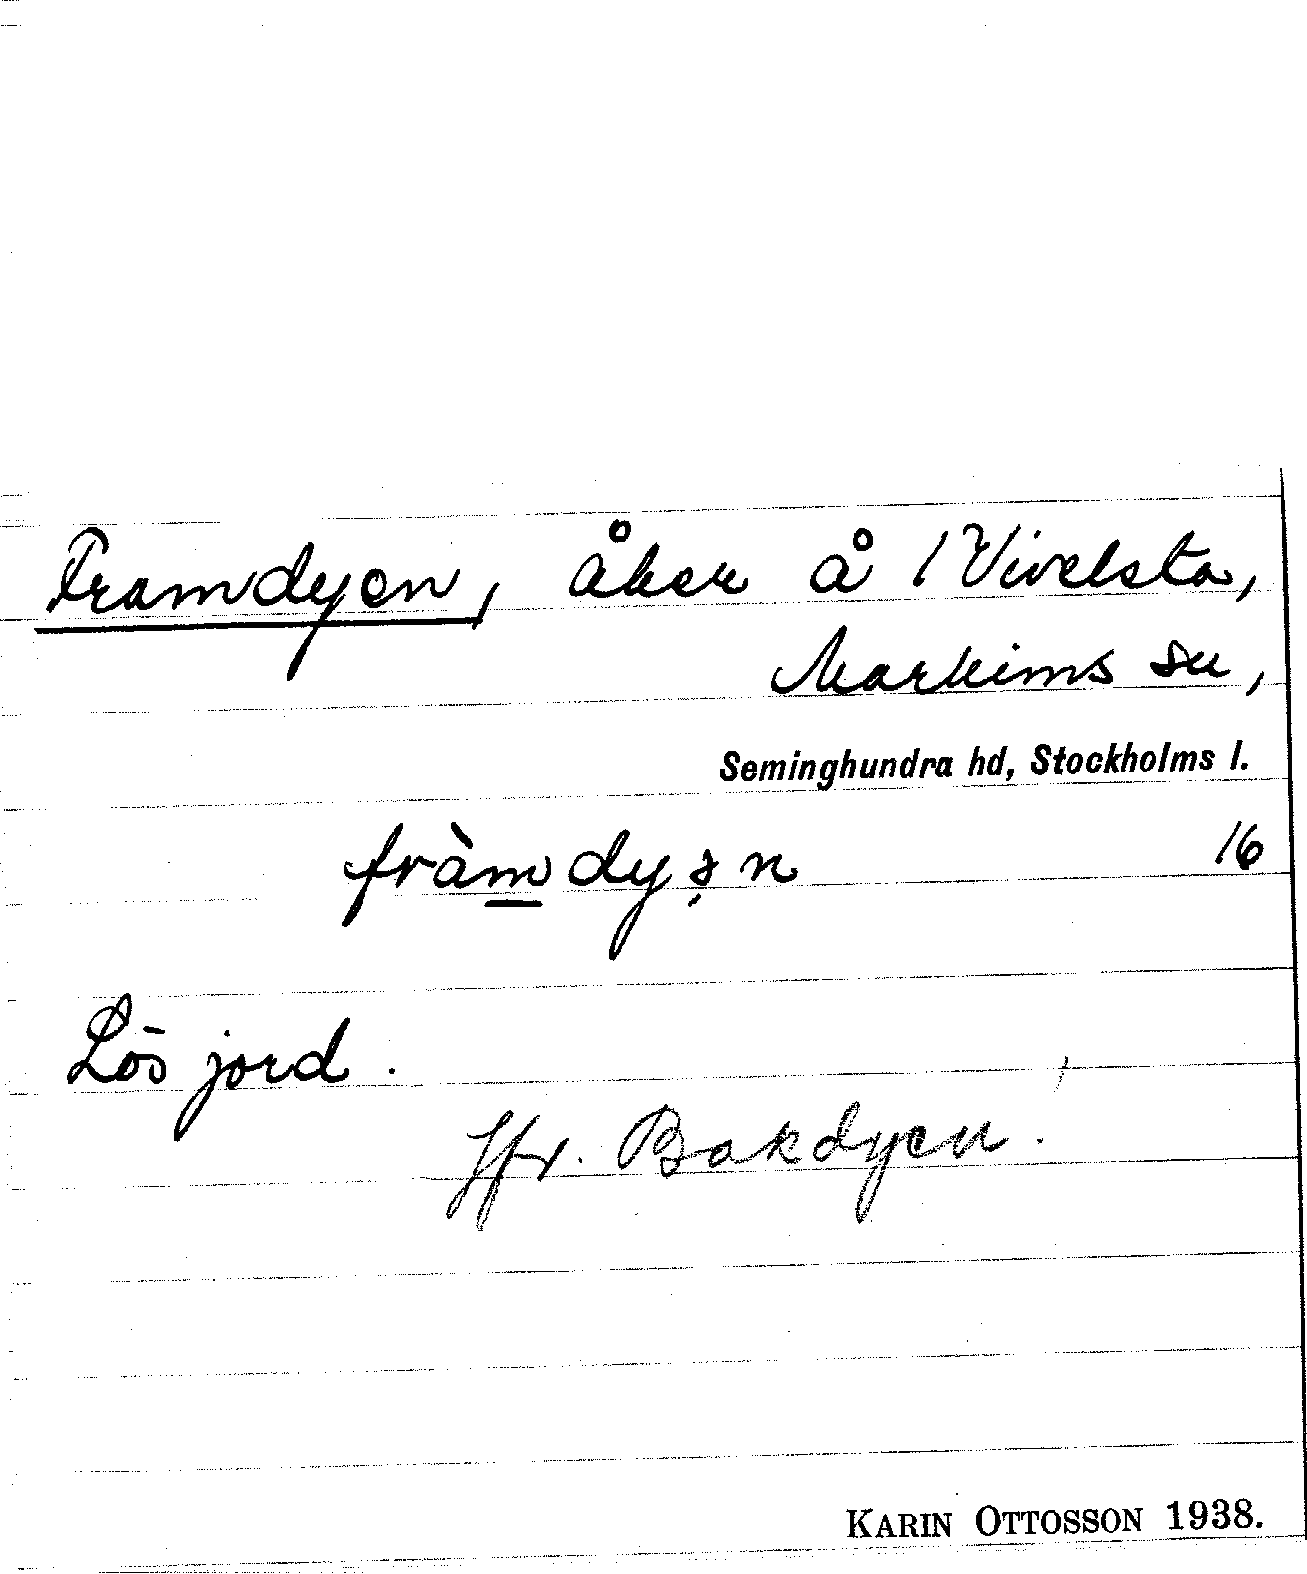 Framdyen, åker å 1 Vivelsta,
Markims sn,
Seminghundra hd, Stockholms l.
fràmdyən 16
Lös jord.
Jfr. Bakdyen.
KARIN OTTOSSON 1938.